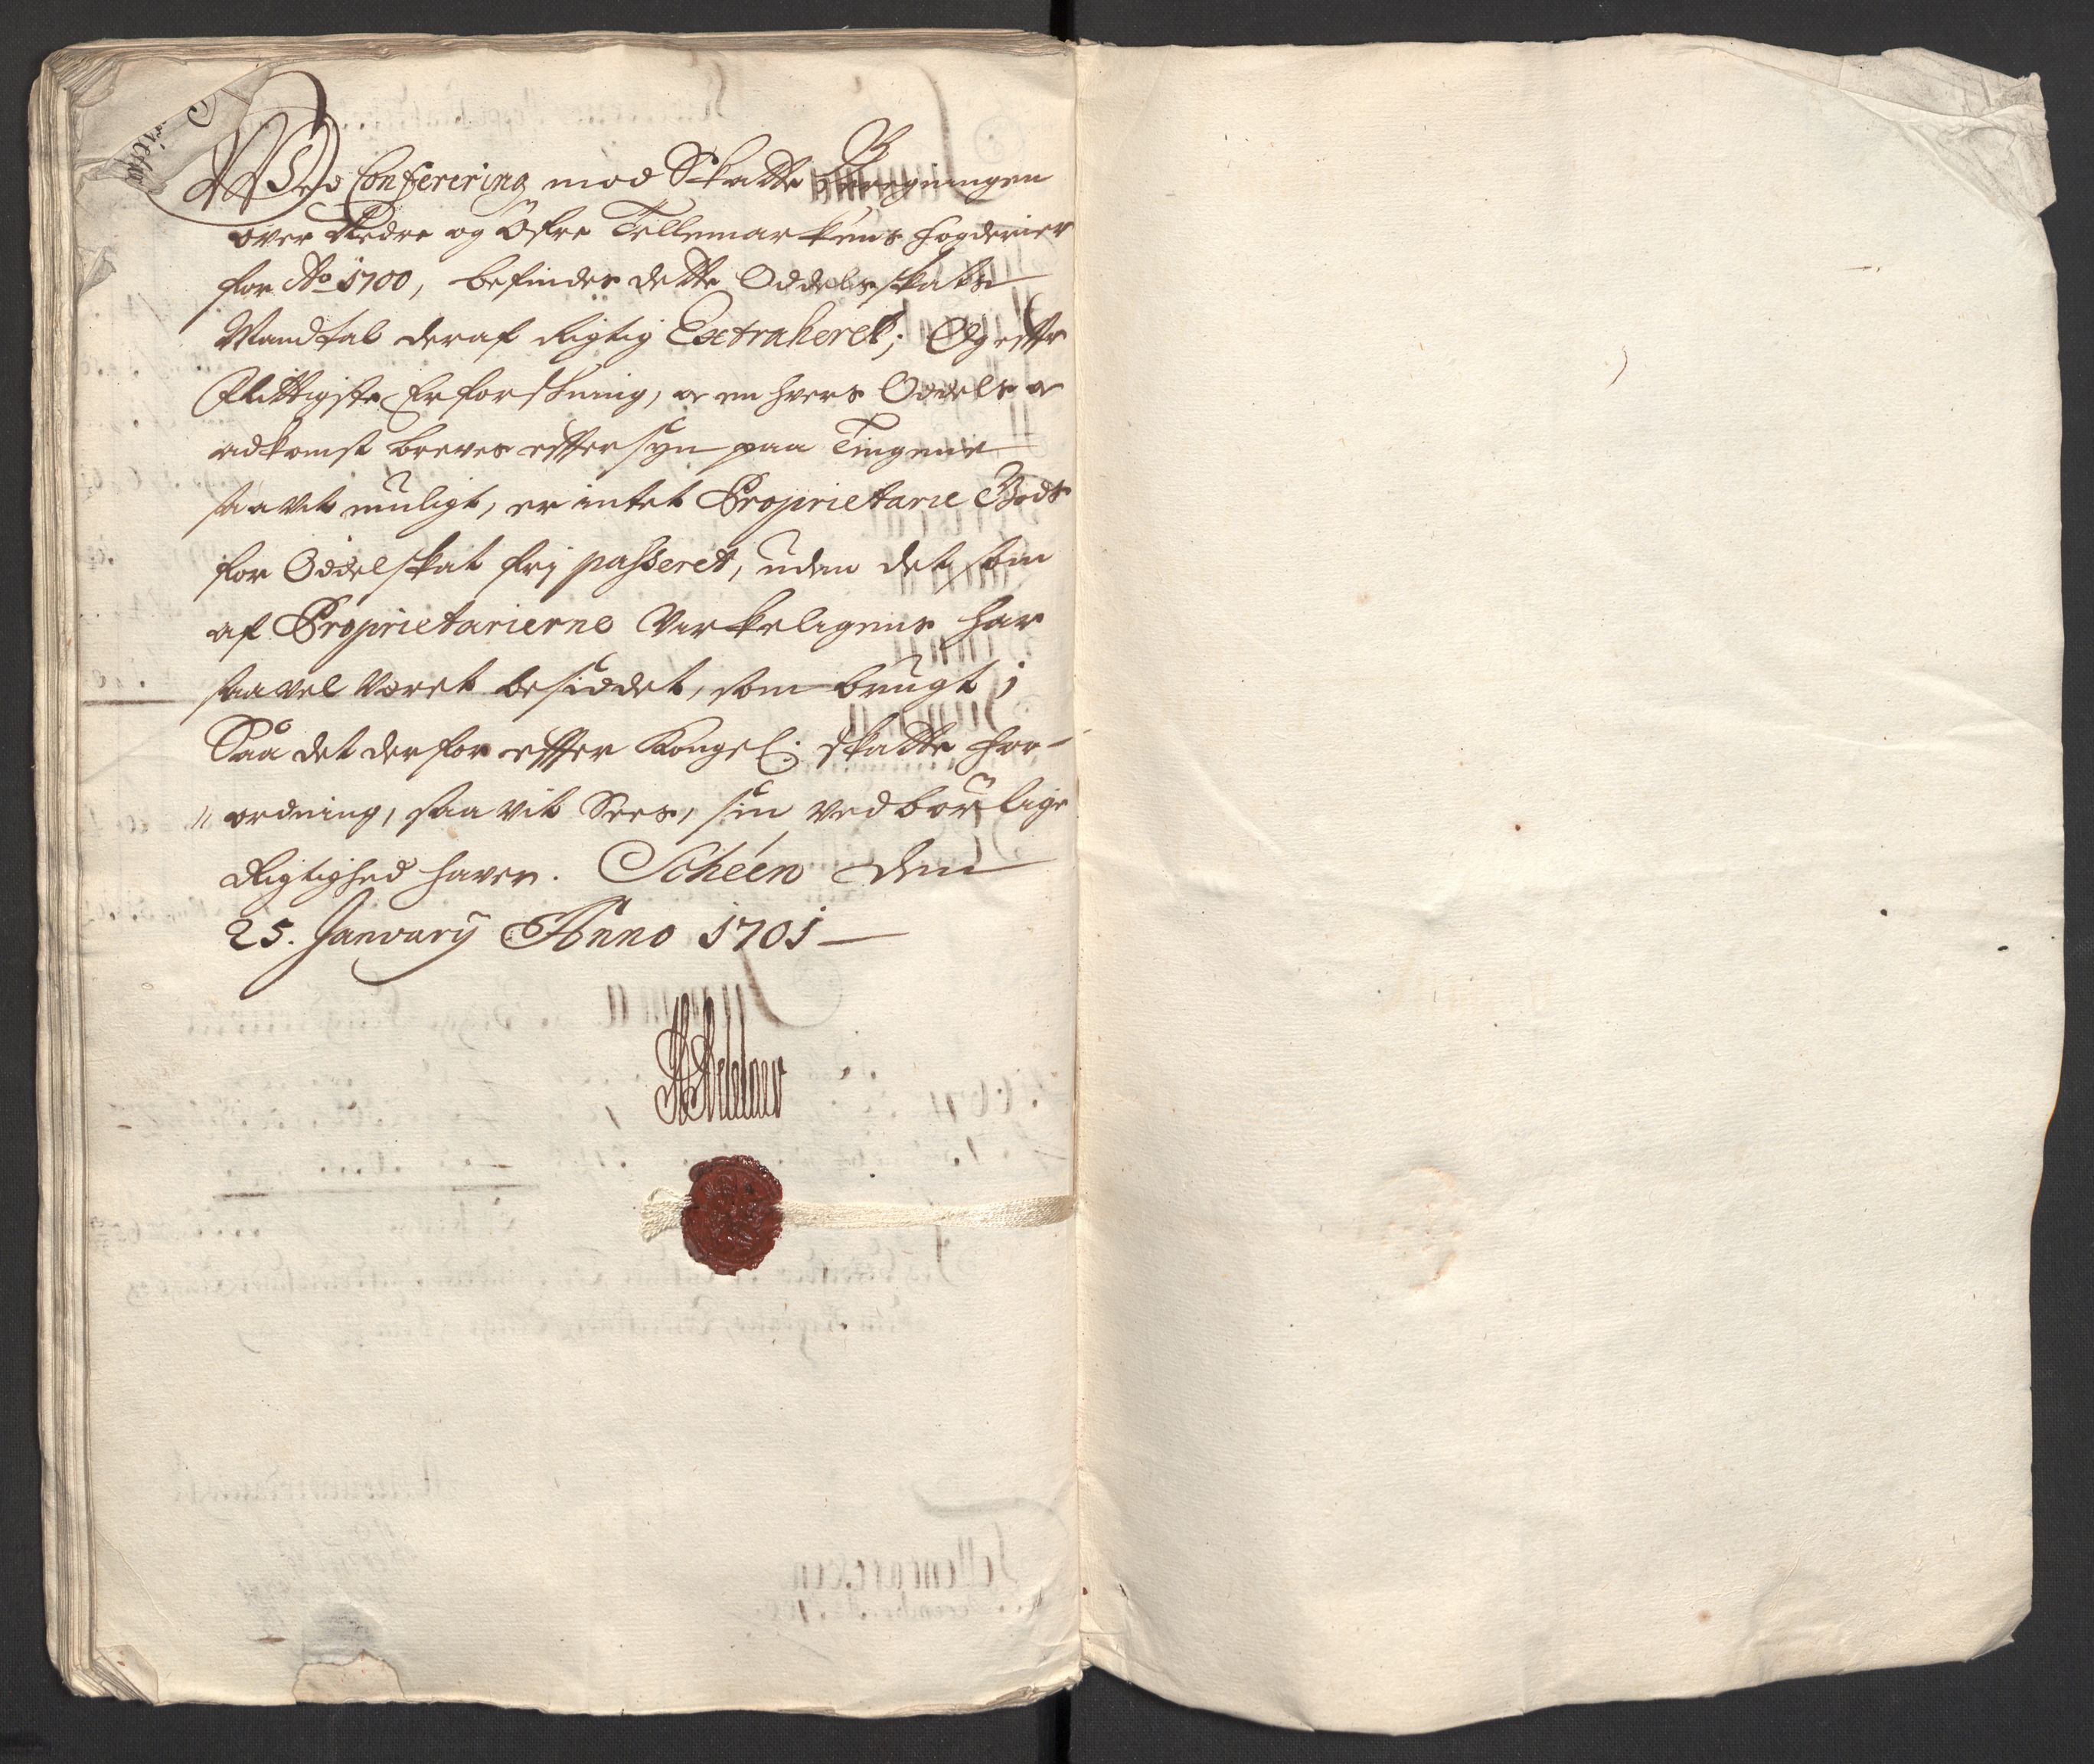 Ved Conferering mod Skatte Beregningen
over Nedre og Öfre Tellemarkens fogderier
for Ao 1700, befindes dette Oddelsskatts
Mandtal deraf Rigtig Extraheret; Og efter
flittigste Erforskning, a en hvers Oddels a
adkomst breves efftersyn paa Tingene
saavit muligt, er intet Proprietarie Gods
for Oddelskat frj passeret, uden det som
af Proprietarierne Verkeligens har
saavel veret besiddet, som brugt;
Saa det derfor effter Kongel: skatte for-
ordning, saa vit Sees, sin ved börlige
Rigtighed haver. Schéen den
25. Januarij Anno 1701